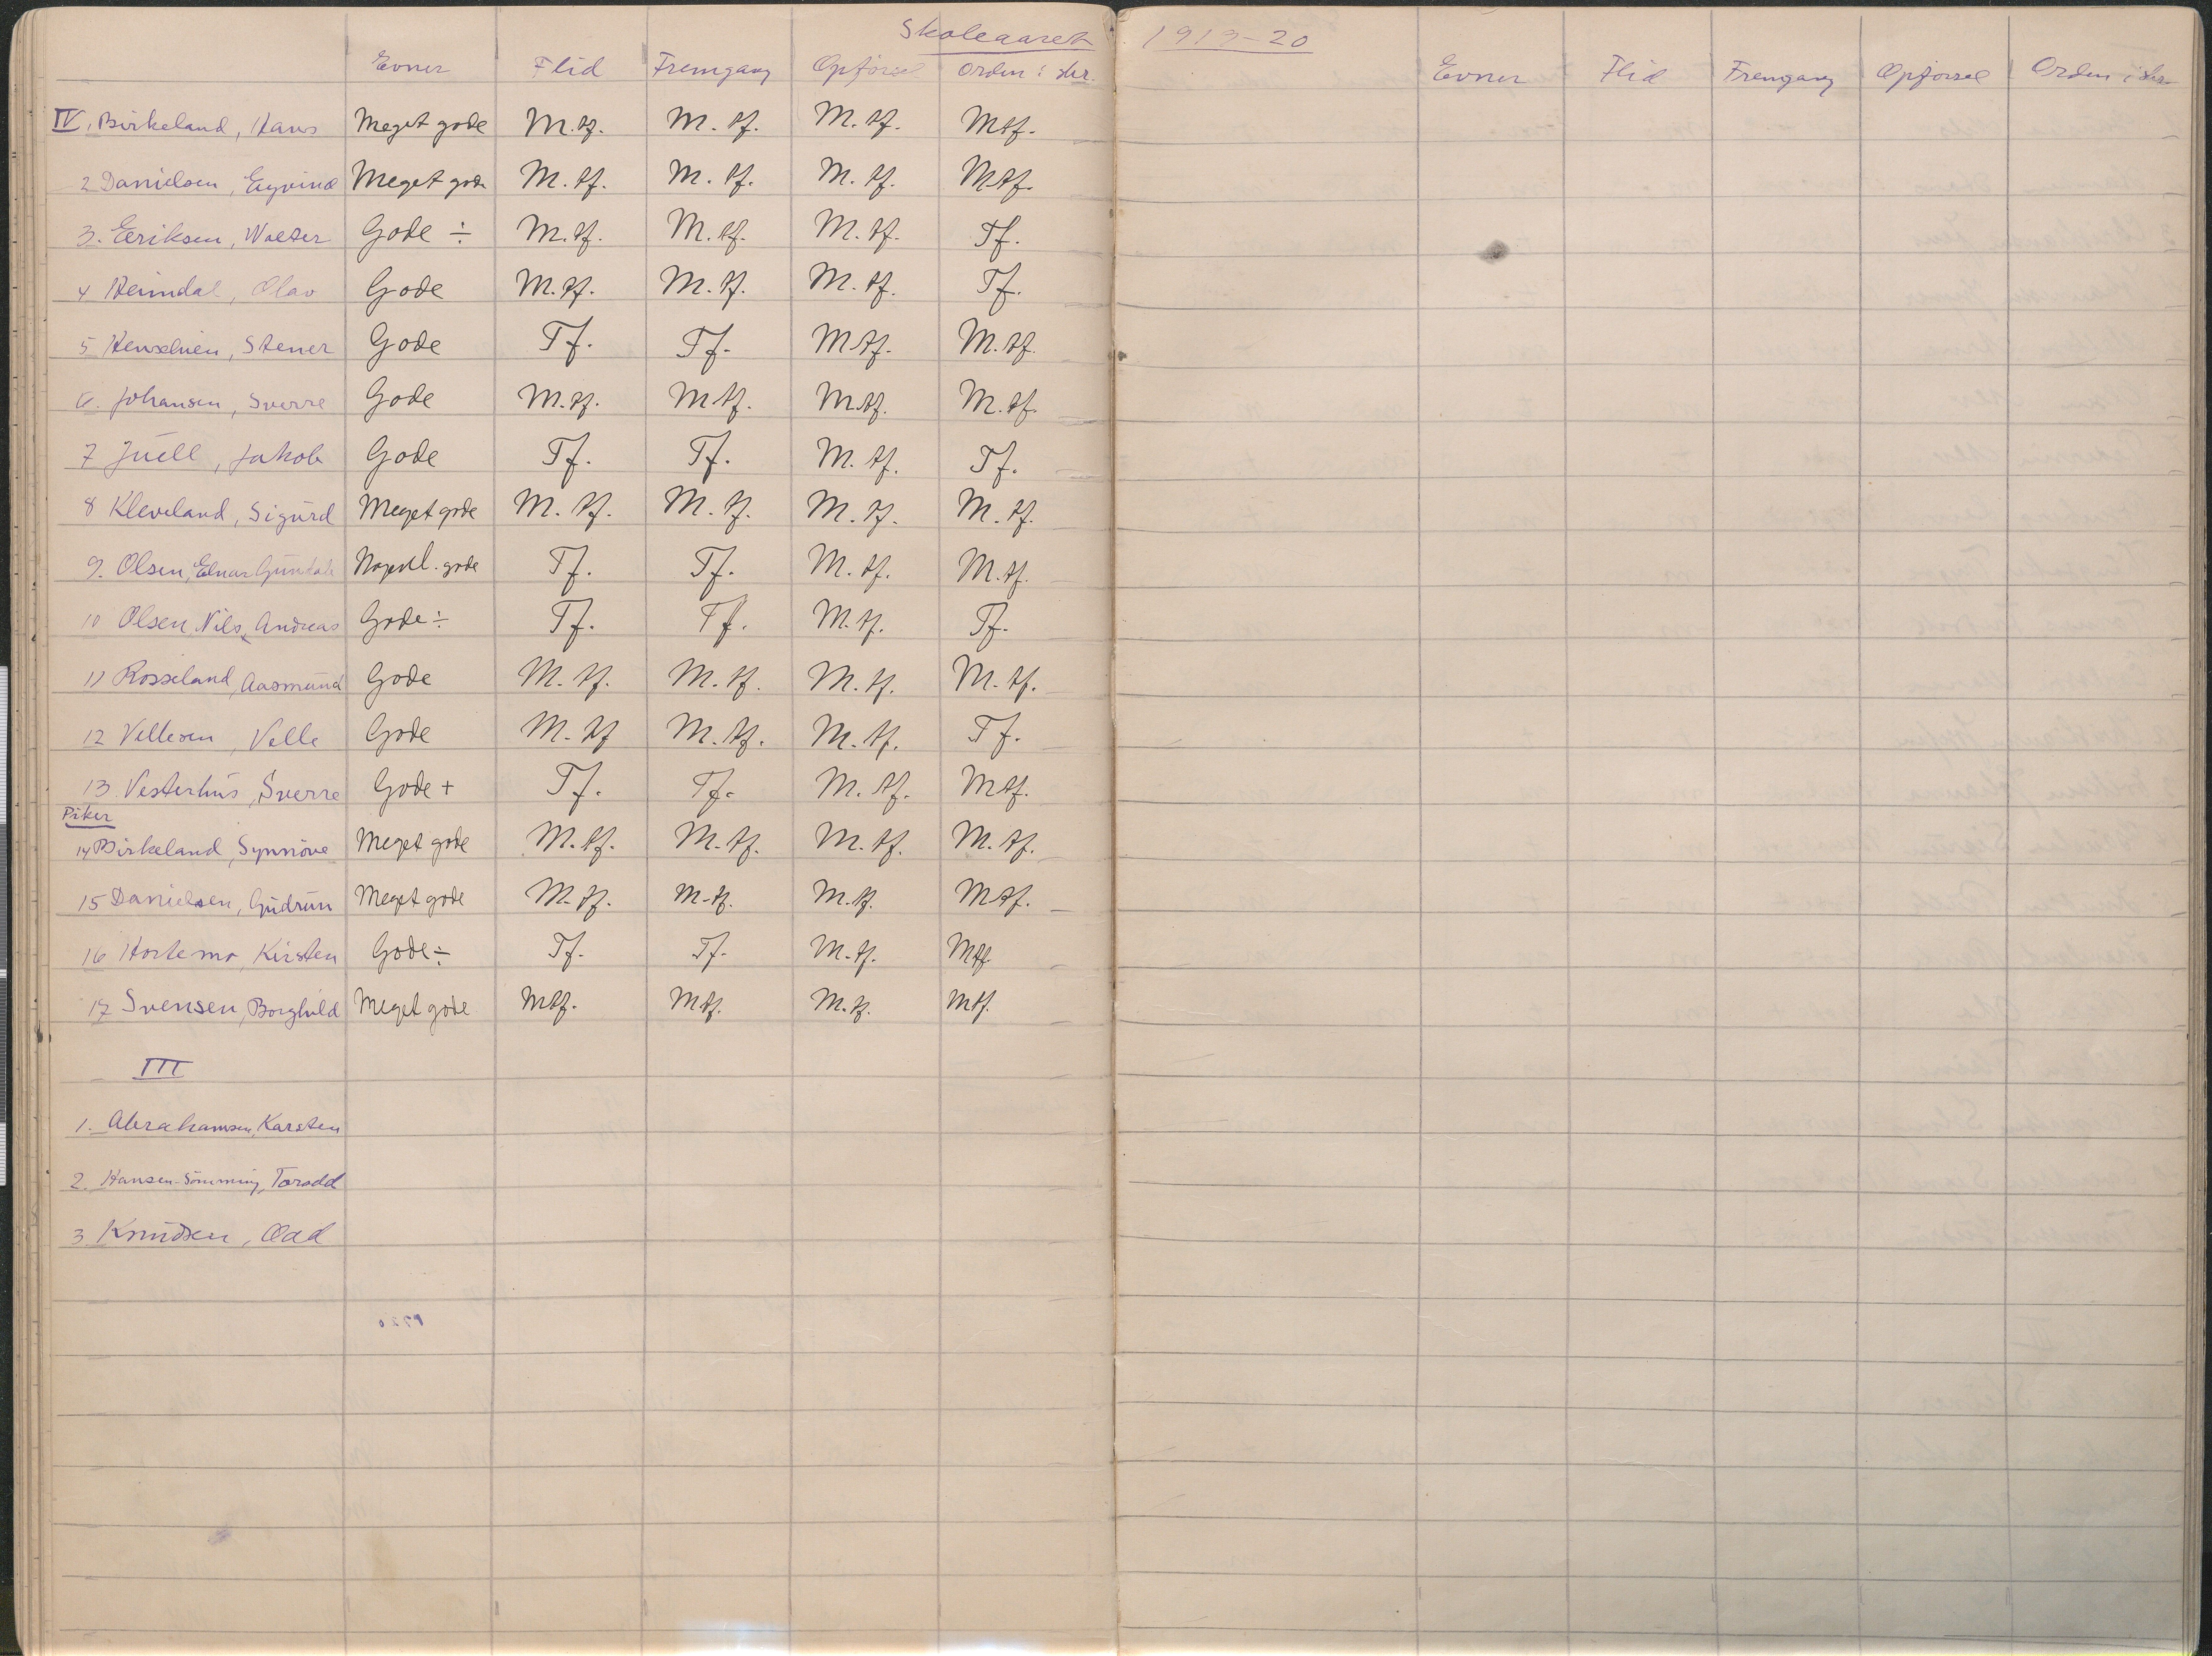 Skoleaaret 1919-20
Evner Flid Fremgang Opførsel Orden i skr. Evner Flid Fremgang Opførsel Orden i skr.
IV. Birkeland, Hans Meget gode M.tf. M.tf. M.tf. Mtf.
2 Danielsen, Eyvind Meget gode M.tf. M.tf. M.tf. Mtf.
3. Eriksen, Walter Gode ÷ M.tf. M.tf. M.tf. Tf.
4 Heimdal, Olav Gode M.tf. M.tf. M.tf. Tf.
5 Stener Gode Tf. Tf. Mtf. M.tf.
6. Johansen, Sverre Gode M.tf. Mtf. M.tf. M.tf.
7 Juell, Jakob Gode Tf. Tf. M.tf. Tf.
8 Kleveland, Sigurd Meget gode M.tf. M.tf. M.tf. M.tf.
9. Olsen, Einar gode Tf. Tf. M.tf. M.tf.
10 Olsen, Nils Andreas Gode ÷ Tf. Tf. M.tf. Tf.
11 Rosseland, Aasmund Gode M.tf. M.tf. M.tf. M.tf.
12 Vellesen, Velle Gode M.tf M.tf. M.tf. Tf.
13 Vesterhus, Sverre Gode + Tf. Tf. M.tf. Mtf.
Piker
14 Birkeland, Synnöve Meget gode M.tf. M.tf. M.tf. M.tf.
15 Danielsen, Gudrun Meget gode M.tf. M.tf. M.tf. Mtf.
16 Hortemo, Kirsten Gode ÷ Tf. Tf. M.tf. Mtf
17 Svensen, Borghild Meget gode Mtf. Mtf. M.tf. Mtf.
III
1. Abrahamsen, Karsten
2. Hansen-Sömming, Torodd
3 Knudsen, Odd